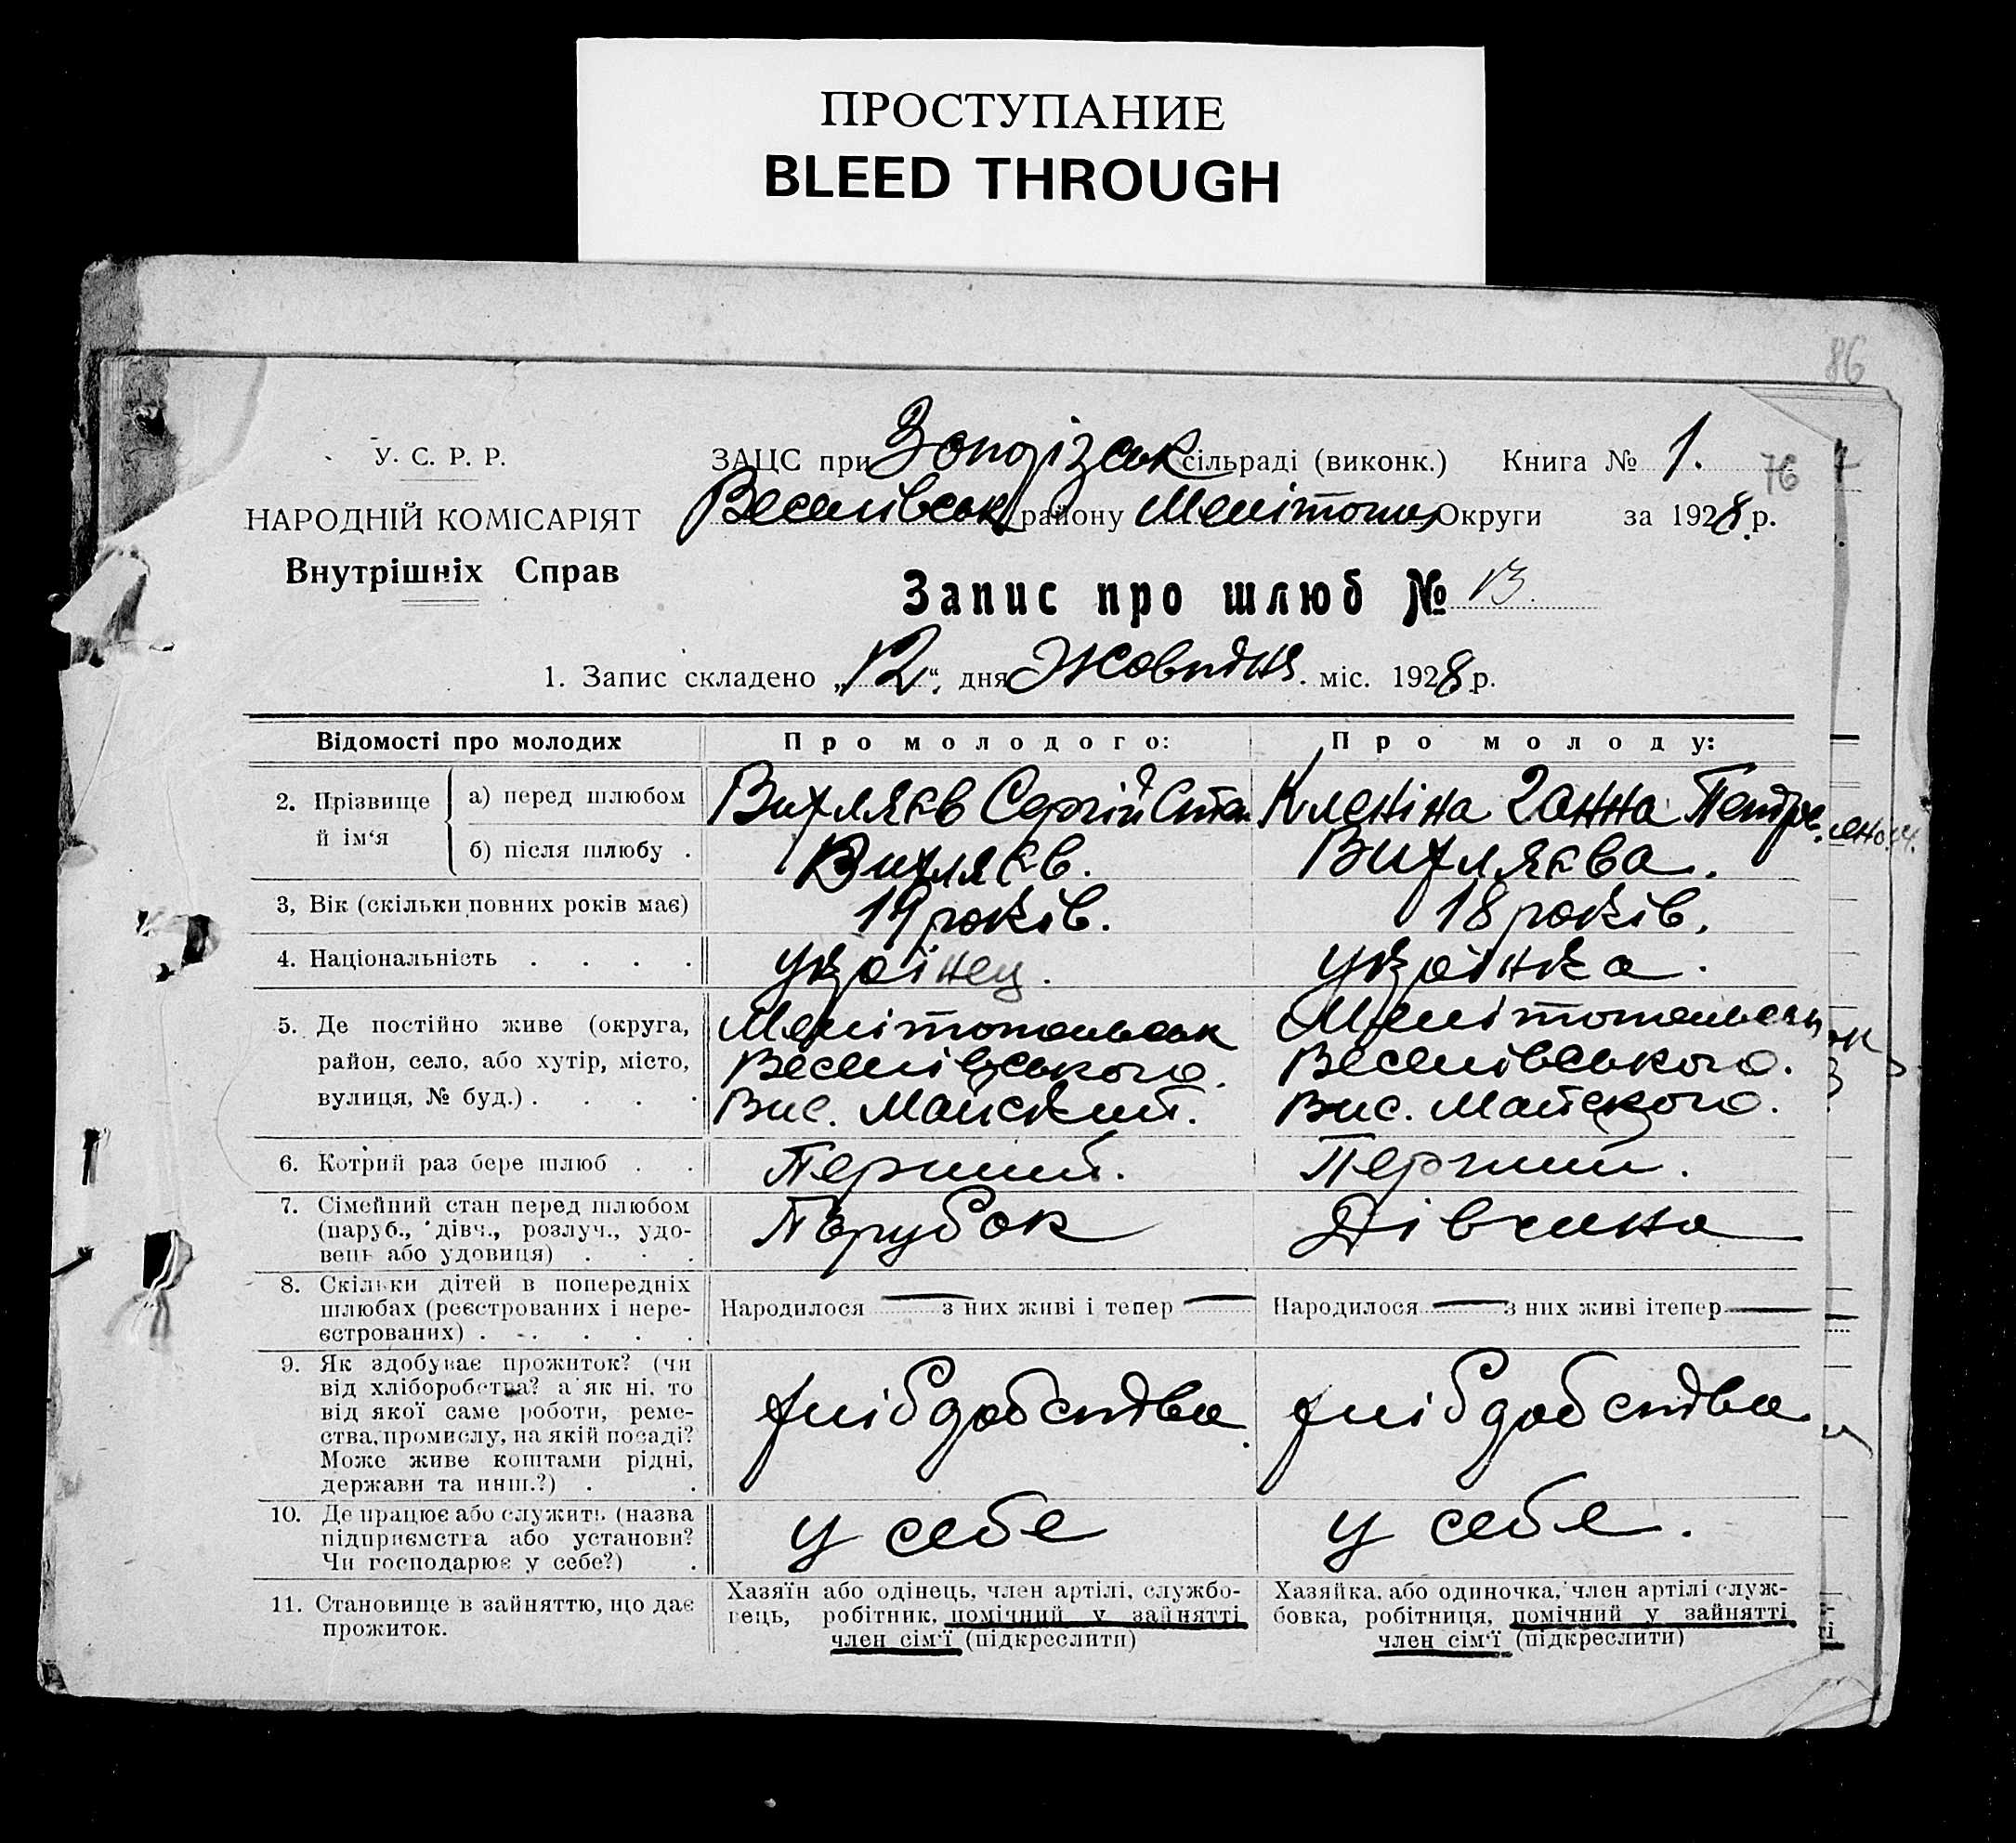 ПРОСТУПАНИЕ
BLEED THROUGH
86
У. С. Р. Р.
НАРОДНІЙ КОМІСАРІЯТ
Внутрішніх Справ
ЗАЦС при сільраді (виконк.) Книга № 1.
76
Веселівськ району Мелітоп Округи за 1928 р.
Запис про шлюб № 13.
1. Запис складено „12“ дня Жовтня міс. 1928 р.
Відомості про молодих
Про молодого:
Про молоду:
2. Прізвище й ім‘я
а) перед шлюбом
Вихляєв Сергій Степ
Кленіна Ганна Петре.
б) після шлюбу .
Вихляєв.
Вихляєва.
3, Вік (скільки повних років має)
19 років.
18 років,
4. Національність . . . .
українец.
українка.
5. Де постійно живе (округа,
район, село, або хутір, місто,
вулиця, № буд.) . . . .
Мелітопольськ
Веселівського.
Вис. Майский.
Мелітопольськ
Веселівського.
Вис. Майского.
6. Котрий раз бере шлюб . .
Перший.
Перший.
7. Сімейний стан перед шлюбом
(паруб., дівч., розлуч., удо-
вець або удовиця) . . .
Парубок
Дівчина
8. Скільки дітей в попередніх
шлюбах (реєстрованих і нере-
єстрованих) . . . . .
Народилося — з них живі і тепер —
Народилося — з них живі ітепер —
9. Як здобуває прожиток? (чи
від хліборобства? а як ні, то
від якої саме роботи, реме-
ства, промислу, на якій посаді?
Може живе коштами рідні,
держави та инш.?) . .
хлібдобства
хлібдобства
10. Де працює або служить (назва
підприємства або установи?
Чи господарює у себе?) .
у себе
у себе.
11. Становище в зайняттю, що дає
прожиток.
Хазяїн або одінець, член артілі, службо-
вець, робітник, помічний у зайнятті
член сім‘ї (підкреслити)
Хазяйка, або одиночка, член артілі служ-
бовка, робітниця, помічний у зайнятті
член сім‘ї (підкреслити)